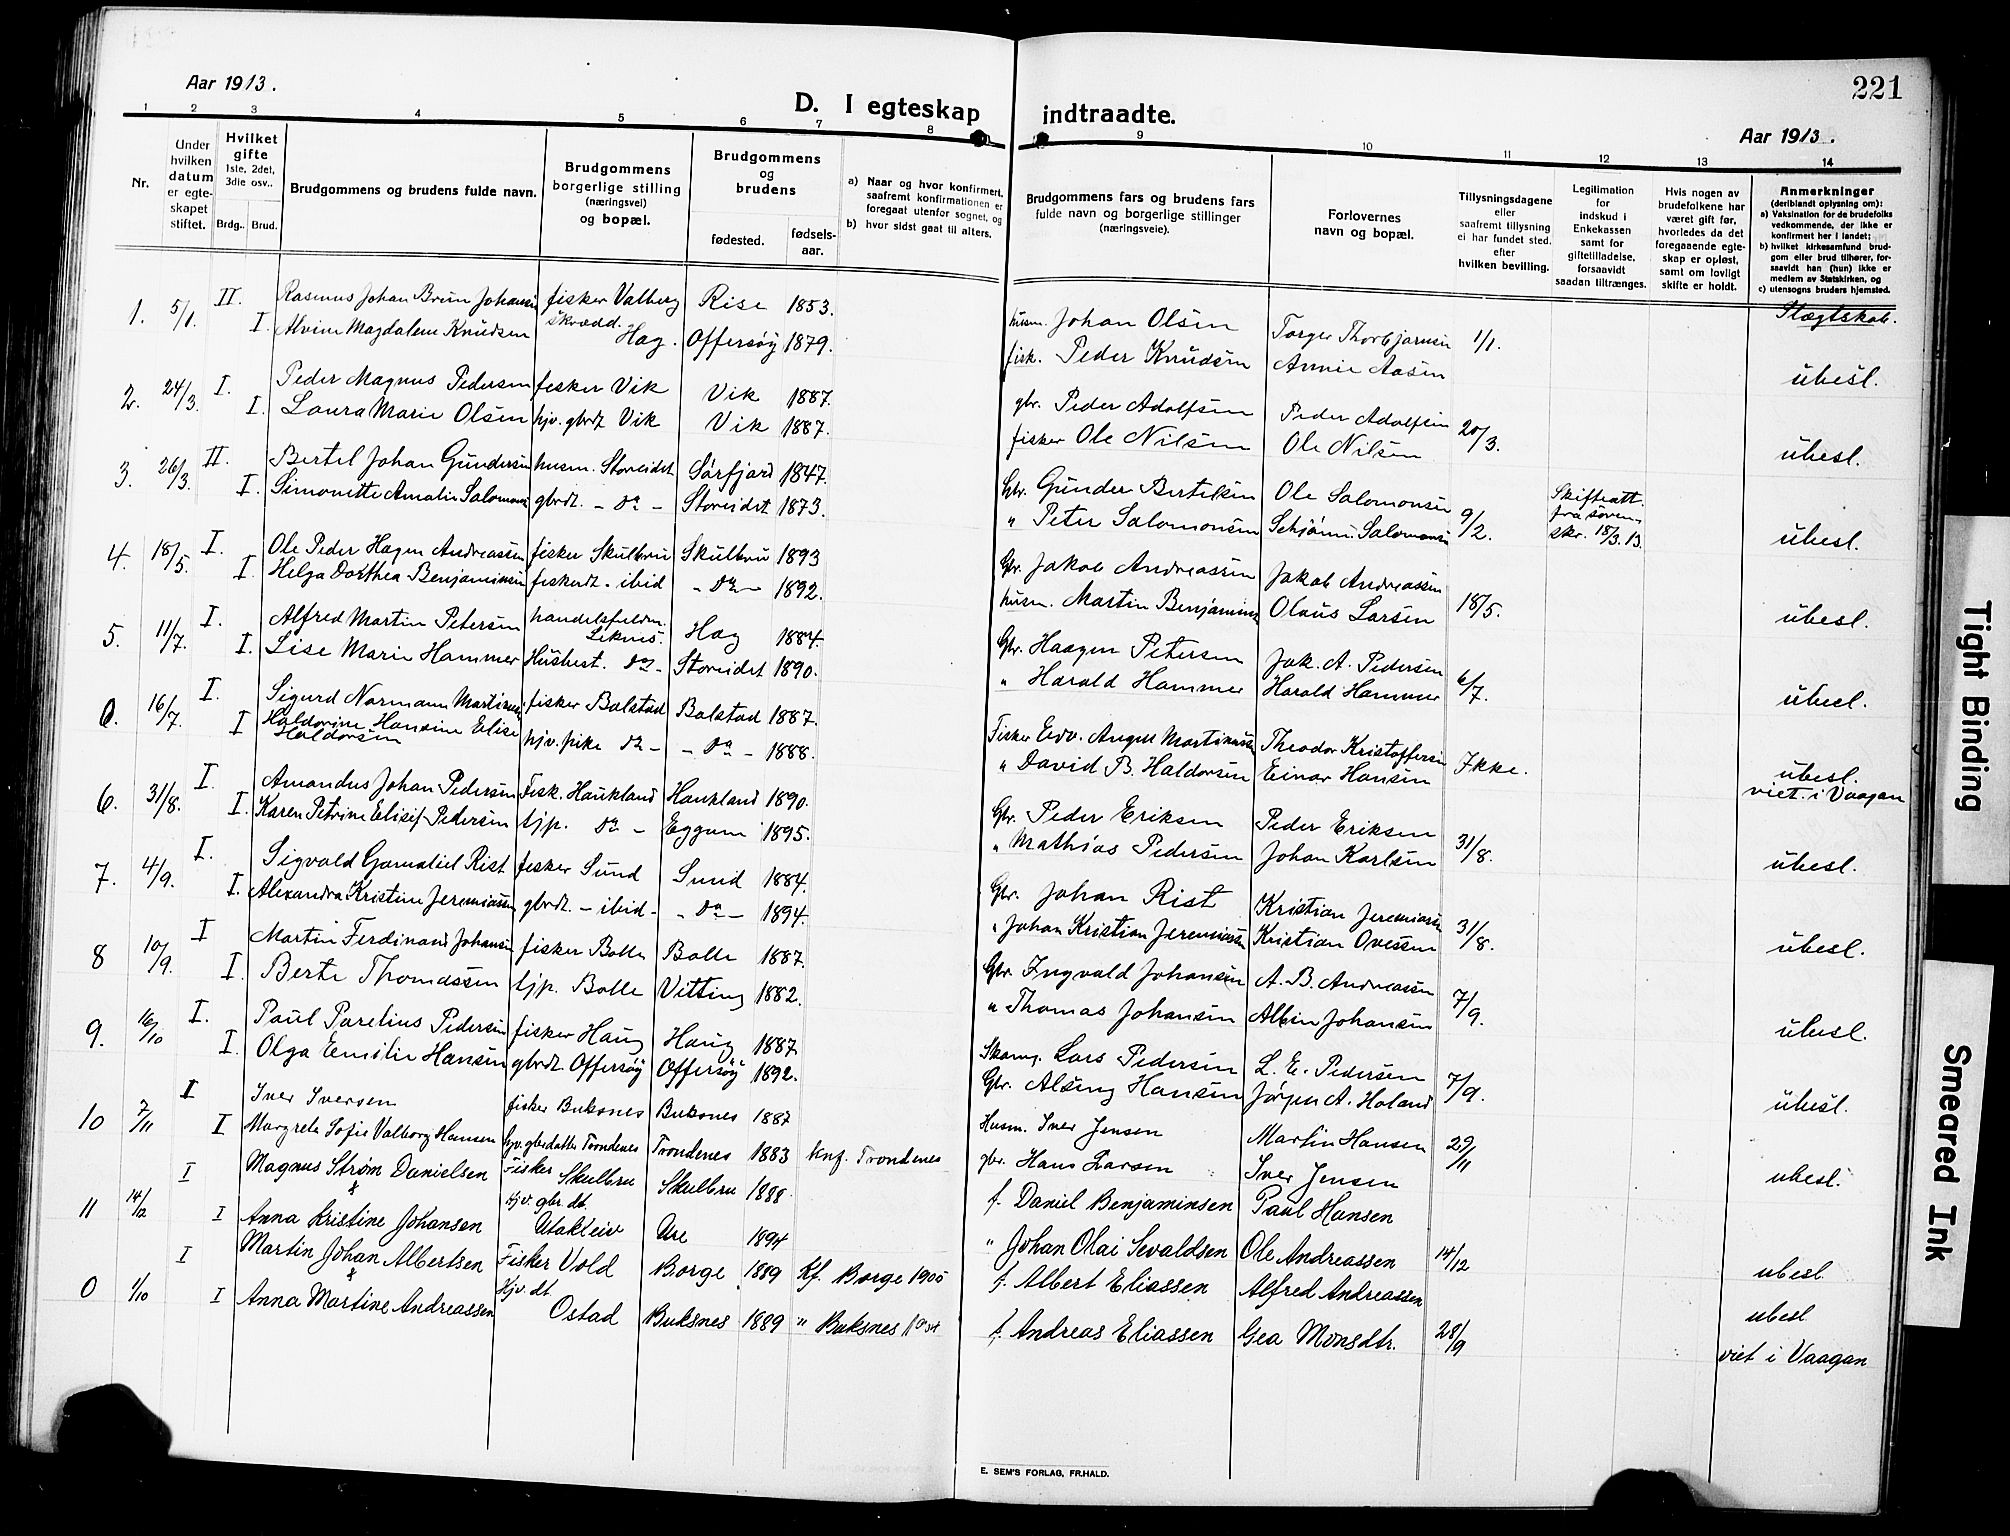 221
Aar 1913.
D. I egteskap indtraadte.
Aar 1913.
1 2 3 4 5 6 7 8 9 10 11 12 13 14
Nr.
Under hvilken datum er egteskapet stiftet.
Hvilket gifte
1ste, 2det, 3die osv..
Brdg..
Brud.
Brudgommens og brudens fulde navn.
Brudgommens borgerlige stilling (næringsvei) og bopæl.
Brudgommens og brudens
fødested.
fødselsaar.
a) Naar og hvor konfirmert, saafremt konfirmationen er foregaat utenfor sognet, og
b) hvor sidst gaat til alters.
Brudgommens fars og brudens fars fulde navn og borgerlige stillinger (næringsveie).
Forlovernes navn og bopæl.
Tillysningsdagene eller saafremt tillysning ei har fundet sted. efter hvilken bevilling.
Legilimation for indskud i Enkekassen samt for giftetilladelse, forsaavidt saadan tiltrænges.
Hvis nogen av brudefolkene har været gift før, hvorledes da det foregaaende egteskap er opløst, samt om lovligt skifte er holdt.
Anmerkninger
(deriblandt oplysning om):
a) Vaksination for de brudefolks vedkommende, der ikke er konfirmert her i landet;
b) hvilket kirkesamfund brudgom eller brud tilhører, forsaavidt han (hun) ikke er medlem av Statskirken, og
c) utensogns bruders hjemsted.
Slægtskab.
1. 5/1. II. Rasmus Johan Brun Johansen fisker Valberg Rise 1853. husm. Johan Olsen Torger Thorbjørnsen 1/1.
I. Alvine Magdalene Knudsen skrædd. Hag. Offersøy 1879. fisk. Peder Knudsen Annie Aasen ubesl.
2. 24/3. I. Peder Magnus Pedersen fisker Vik Vik 1887. gbr. Peder Adolfsen Peder Adolfsen 20/3.
I. Laura Marie Olsen hjv. gbrdt Vik Vik 1887. fisker Ole Nilsen Ole Nilsen ubesl.
3. 26/3. II. Bertel Johan Gundersen husm. Storeidet Sørfjord 1847. Gbr. Gunder Bertelsen Ole Salomonsen 9/2. Skifteatt. fra soren skr. 18/3. 13.
I. Simonette Amalie Salomonsen gbrdt. - Do - Storeidet 1873. " Peter Salomonsen Schjønn. Salomonsen ubesl.
4. 18/5. I. Ole Peder Hagen Andreassen fisker Skulbru Skulbru 1893 Gbr. Jakob Andreassen Jakob Andreassen 18/5.
I. Helga Dorthea Benjaminsen fiskerdt - ibid - Do - 1892. husm. Martin Benjaminsen Olaus Larsen ubesl.
5. 11/7. I. Alfred Martin Petersen handelsfuldm. Leknes. Hag 1884. Gbr. Haagen Petersen Jak. A. Pedersen 6/7.
I. Lise Marie Hammer Hushest. Do - Storeidet 1890. " Harald Hammer Harald Hammer ubesl.
0. 16/7. I. Sigurd Normann Martinussen fisker Balstad Balstad 1887. Fisker Edv. Angell Martinussen Theodor Kristoffersen Ikke.
I Haldorine Hansine Elise Haldorsen hjv. pike Do - - Do - 1888. " David B. Haldorsen Einar Hansen ubesl. viet. i Vaagan
6. 31/8. I. Amandus Johan Pedersen Fisk. Haukland Haukland 1890. Gbr. Peder Eriksen Peder Eriksen 31/8.
I. Karen Petrine Elisif Pedersen tjp. Do - Eggum 1895. " Mathias Pedersen Johan Karlsen ubesl.
7. 4/9. I. Sigvald Gamaliel Rist fisker Sund Sund 1884. Gbr. Johan Rist Kristian Jeremiassen 31/8.
I. Alexandra Kristine Jeremiassen gbrdt. - ibid - - Do - 1894. " Johan Kristian Jeremiassen Kristian Ovessen ubesl.
8 10/9. I Martin Ferdinand Johansen fisker Bolle Bolle 1887. Gbr. Ingvald Johansen A. B. Andreassen 7/9.
I. Berte Thomassen tjp. Bolle Vitting 1882. " Thomas Johansen Albin Johansen ubesl.
9. 16/10 I. Paul Parelius Pedersen fisker Haug Haug 1887. Skomg. Lars Pedersen L. E. Pedersen 7/9.
I. Olga Emilie Hansen gbrdt. Offersøy Offersøy 1892. Gbr. Alsing Hansen Jørgen A. Holand ubesl.
10 7/11 I Iver Iversen fisker Buksnes Buksnes 1887 Husm. Iver Jensen Martin Hansen 29/11
I Margrete Sofie Valborg Hansen hjv. gbrdatter Trondenes Trondenes 1883 knf. Trondenes gbr. Hans Larsen Iver Jensen ubesl.
11 14/12 I Magnus Strøm Danielsen & Fisker Skulbru Skulbru 1888. f. Daniel Benjaminsen Paul Hansen
I Anna Kristine Johansen Hjv. gbr. dt. Utakleiv Ure 1894 " Johan Olai Sevaldsen Ole Andreassen 14/12 ubesl
0 1/10 I Martin Johan Albertsen & Fisker Vold Borge 1889 Kf. Borge 1905 f. Albert Eliassen Alfred Andreassen ubesl
I Anna Martine Andreassen Hjv. dt Ostad Buksnes 1889 " Buksnes 1904 f. Andreas Eliassen Gea Monsdtr. 28/9 viet i Vaagan
E. SEM'S FORLAG, FR.HALD.
Tight Binding
Smeared Ink